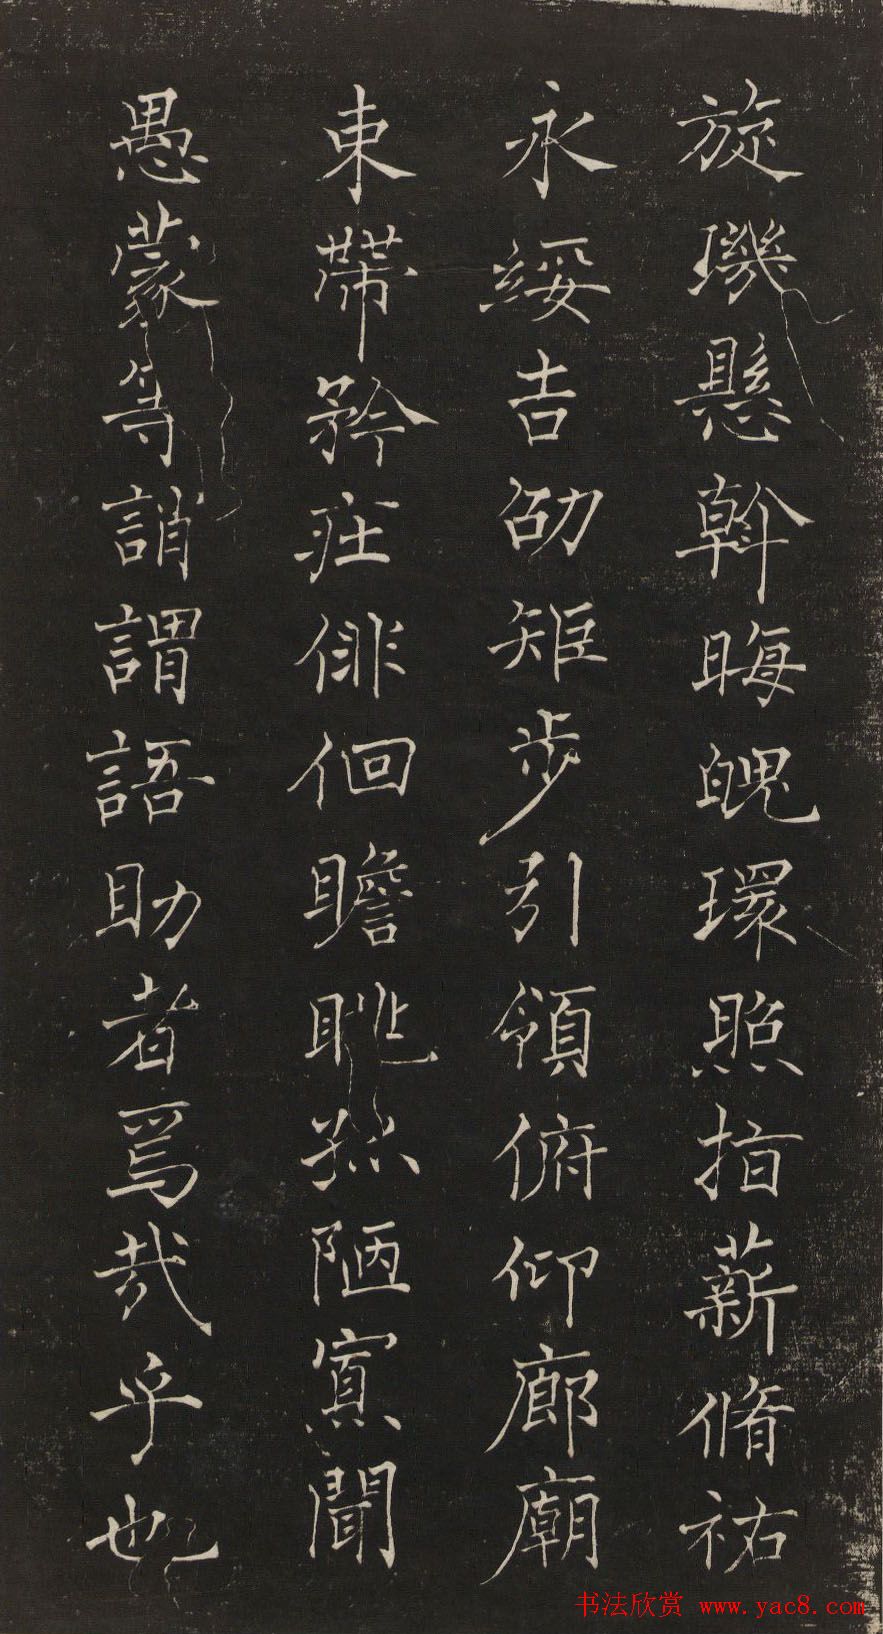 旋璣懸斡晦魄環照指薪脩祐
永綏吉劭矩步引領俯仰廊廟
束帶矜莊俳佪瞻眺孤陋寡聞
愚蒙等誚謂語助者焉哉乎也
书法欣赏 www.yac8.com